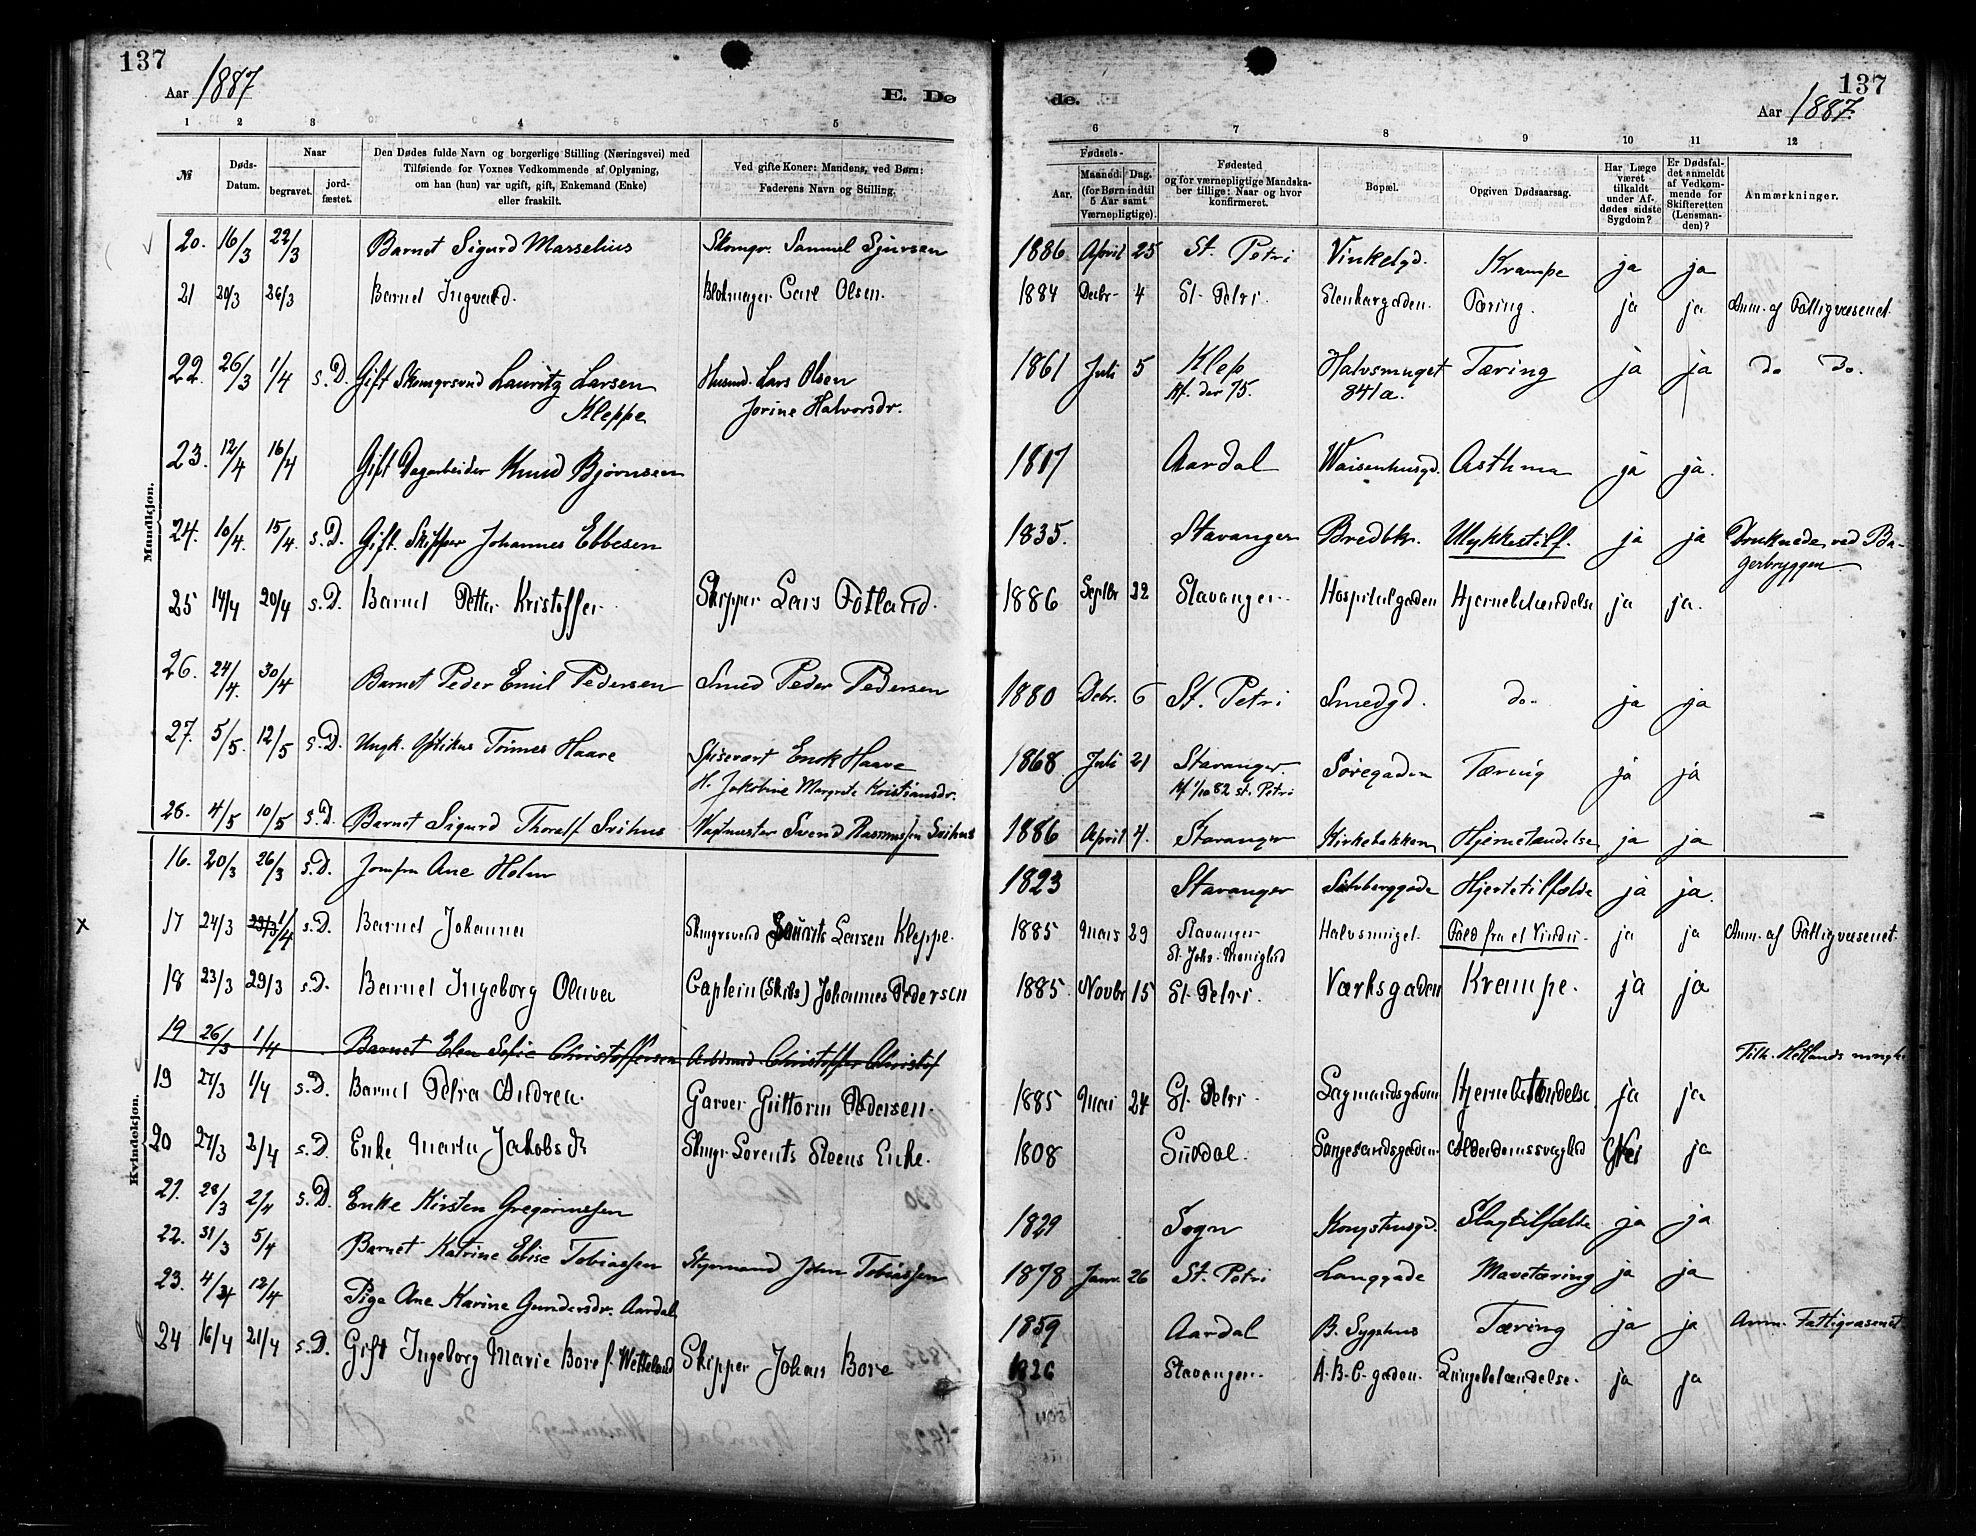 137
Aar 1887
E. Dø
1 2 3 4 5
№
Døds-
Datum.
Naar
begravet.
jord-
fæstet.
Den Dødes fulde Navn og borgerlige Stilling (Næringsvei) med
Tilføiende for Voxnes Vedkommende af Oplysning,
om han (hun) var ugift, gift, Enkemand (Enke)
eller fraskilt.
Ved gifte Koner: Mandens, ved Børn:
Faderens Navn og Stilling.
Mandkjøn.
20. 16/3 22/3 Barnet Sigurd Marselius Skomgr. Samuel Sjursen
21 20/3 26/3 Barnet Ingvald. Blokmager Carl Olsen.
22. 26/3 1/4 s.D. Gift Skomgrsvend Lauritz Larsen Husmd. Lars Olsen
Kleppe Jorine Halvorsdr.
23. 12/4 16/4 Gift Dagarbeider Knud Bjørnsen
24. 10/4. 15/4. s.D. Gift. Skipper Johannes Ebbesen
25 14/4 20/4 s.D. Barnet Petter Kristoffer. Skipper Lars Fotland.
26. 24/4. 30/4 Barnet Peder Emil Pedersen Smed Peder Pedersen
27. 5/5. 12/5 s.D. Ungk. Optikus Tønnes Haave Spisevert Enok Haave
H. Jakobine Margrete Kristiansdr.
28. 4/5 10/5 s.D. Barnet Sigurd Thoralf Svihus Vagtmester Svend Rasmussen Svihus
Kvindekjøn.
16. 20/3 26/3 s.D. Jomfru Ane Holm
17 24/3 29/3 1/4 s.D. Barnet Johanna Skmgrsvend Laurits Larsen Kleppe.
18 23/3 29/3 s.D. Barnet Ingeborg Olava Captein (Skibs) Johannes Pedersen
19 26/3 1/4 Barnet Elen Sofie Christoffersen Arbdsmd Christoffer Christof
19 27/3 1/4 s.D. Barnet Petra Andrea. Garver Guttorm Pedersen.
20 27/3 2/4 s.D. Enke Marta Jakobsdr Skmgr. Lorents Steens Enke.
21. 28/3 2/4 s.D. Enke Kirsten Gregoriussen
22. 31/3 5/4 Barnet Katrine Elise Tobiassen Styrmand John Tobiassen
23. 4/4 12/4 Pige Ane Karine Gundersdr. Aardal
24 16/4 21/4 s.D. Gift Ingeborg Marie Bore f. Wetteland Skipper Johan Bore
137
Aar 1887.
de.
6 7 8 9 10 11 12
Fødsels-
Aar.
Maaned. Dag.
(for Børn indtil
5 Aar samt
Værnepligtige).
Fødested
og for værnepligtige Mandska-
ber tillige: Naar og hvor
konfirmeret.
Bopæl.
Opgiven Dødsaarsag.
Har Læge
været
tilkaldt
under Af-
dødes sidste
Sygdom?
Er Dødsfal-
det anmeldt
af Vedkom-
mende for
Skifteretten
(Lensman-
den)?
Anmærkninger.
1886. April 25 St. Petri Vinkelgd. Krampe ja ja
1884 Decbr. 4 St. Petri. Stenkargaden. Tæring. ja ja Anm. af Fattigvæsenet.
1861 Juli 5 Klep Halvsmuget Tæring ja ja do Do.
Kf. der 75. 841a.
1817 Aardal Waisenhusgd. Asthma ja ja.
1835. Stavanger Bredbk. Ulykkestilf. ja ja Druknede ved Ba-
gerbryggen
1886 Septbr 22 Stavanger. Hospitalgaden Hjernebetændelse ja ja.
1880 Debr. 6 St. Petri Smedgd. do. ja ja
1868. Juli 21 Stavanger. Søregaden Tæring ja ja
Kf 1/10 82 st. Petri
1886 April 4. Stavanger Kirkebakken Hjernetændelse ja ja
1823 Stavanger Sølvberggade Hjertetilfælde ja ja.
1885 Mars 29 Stavanger Halvsmuget. Fald fra et Vindu. ja ja Anm. af Fattigvæsenet.
St. Joh. Menighed
1885. Novbr 15 St. Petri. Værksgaden Krampe. ja ja
Tilh. Hetlands mengh.
1885 Mai 24 St. Petri. Sagmandsgaden Hjernebetændelse. ja ja
1808 Suldal. Langesandsgaden Alderdomssvaghed Nei ja
1829 Sogn Kongshusgd. Slagtilfælde ja ja
1878 Janr. 26 St. Petri Langgade Mavetæring ja ja
1859 Aardal B. Sygehus Tæring ja ja Anm. Fattigvæsenet.
1826 Stavanger. A.B.C. gaden. Lungebetændelse. ja ja